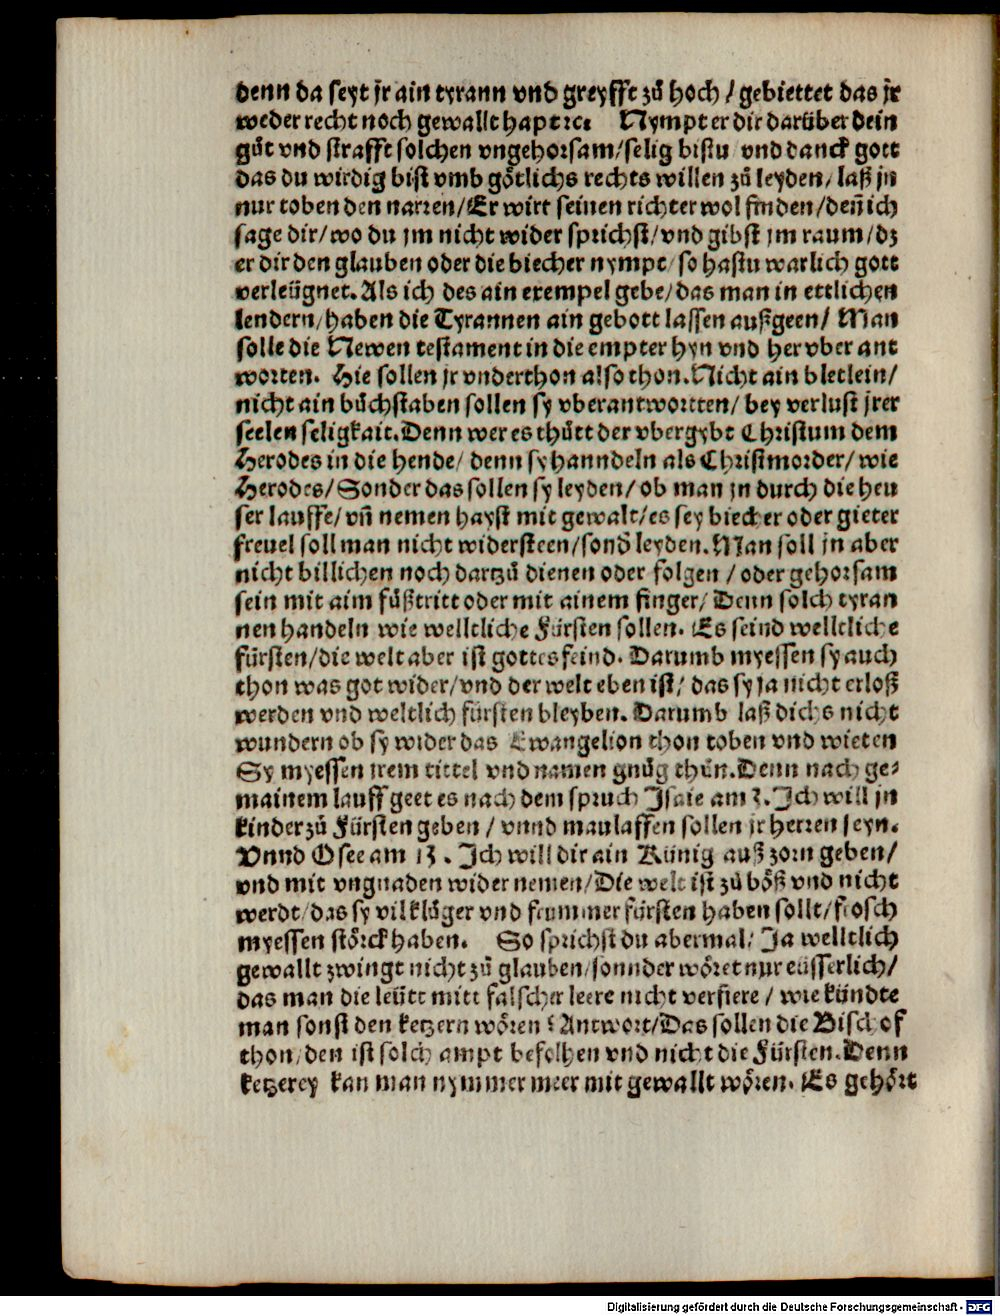 denn da seyt jr ain tyrann vnd greyfft zů hoch / gebiettet das jr
weder recht noch gewallt hapt ⁊c. Nympt er dir darüber dein
gůt vnd strafft solchen vngehorsam/selig bistu vnd danck gott
das du wirdig bist vmb götlichs rechts willen zů leyden/ laß jn
nur toben den narren/Er wirt seinen richter wol finden/deñ ich
sage dir/wo du jm nicht wider sprichst/vnd gibst jm raum/dz
er dir den glauben oder die biecher nympt/so hastu warlich gott
verleügnet. Als ich des ain exempel gebe/das man in ettlichen
lendern/haben die Tyrannen ain gebott lassen außgeen/ Man
solle die Newen testament in die empter hyn vnd her vber ant
worten. Hie sollen jr vnderthon also thon. Nicht ain bletlein/
nicht ain bůchstaben sollen sy vberantwortten/ bey verlust jrer
seelen seligkait. Denn wer es thůtt der vbergybt Christum dem
Herodes in die hende/ denn sy hanndeln als Christmorder/wie
Herodes/Sonder das sollen sy leyden/ob man jn durch die heu
ser lauffe/vñ nemen hayst mit gewalt/es sey biecher oder gieter
freuel soll man nicht widersteen/sond̄ leyden. Man soll jn aber
nicht billichen noch dartzů dienen oder folgen / oder gehorsam
sein mit aim fůßtritt oder mit ainem finger/ Denn solch tyran
nen handeln wie welltliche Fürsten sollen. Es seind welltliche
fürsten/die welt aber ist gottes feind. Darumb myessen sy auch
thon was got wider/vnd der welt eben ist/ das sy ja nicht erloß
werden vnd weltlich fürsten bleyben. Darumb laß dichs nicht
wundern ob sy wider das Ewangelion thon toben vnd wieten
Sy myessen irem tittel vnd namen gnůg thůn. Denn nach ge⸗
mainem lauff geet es nach dem spruch Jsaie am 3. Jch will jn
kinder zů Fürsten geben / vnnd maulaffen sollen jr herren seyn.
Vnnd Osee am 13. Jch will dir ain Künig auß zorn geben/
vnd mit vngnaden wider nemen/Die welt ist zů böß vnd nicht
werdt/das sy vil klůger vnd frummer fürsten haben sollt/frosch
myessen störck haben. So sprichst du abermal/ Ja welltlich
gewallt zwingt nicht zů glauben/sonnder wöret nur eüsserlich/
das man die leütt mitt falscher leere nicht verfiere / wie kündte
man sonst den ketzern wören? Antwort/Das sollen die Bischof
thon/den ist solch ampt befolhen vnd nicht die Fürsten. Denn
ketzerey kan man nymmer meer mit gewallt wören. Es gehört
Digitalisierung gefördert durch die Deutsche Forschungsgemeinschaft - DFG